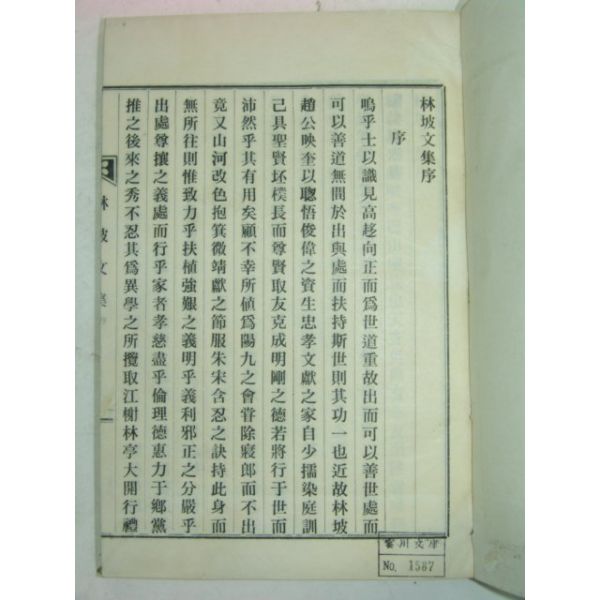 林坡文集序
序
嗚乎士以識見高趍向正而爲世道重故出而可以善世處而
可以善道無間於出與處而扶持斯世則其功一也近故林坡
趙公映奎以聰悟俊偉之資生忠孝文獻之家自少擩染庭訓
己具聖賢坯樸長而尊賢取友克成明剛之德若將行于世而
沛然乎其有用矣顧不幸所値爲陽九之會甞除寢郞而不出
竟又山河改色抱箕微靖獻之節服朱宋含忍之訣持此身而
無所往則惟致力乎扶植強艱之義明乎義利邪正之分嚴乎
出處尊攘之義處而行乎家者孝慈盡乎倫理德惠力于鄕黨
推之後來之秀不忍其爲異學之所攬取江榭林亭大開行禮
林坡文集
序
川文庫
No. 1587